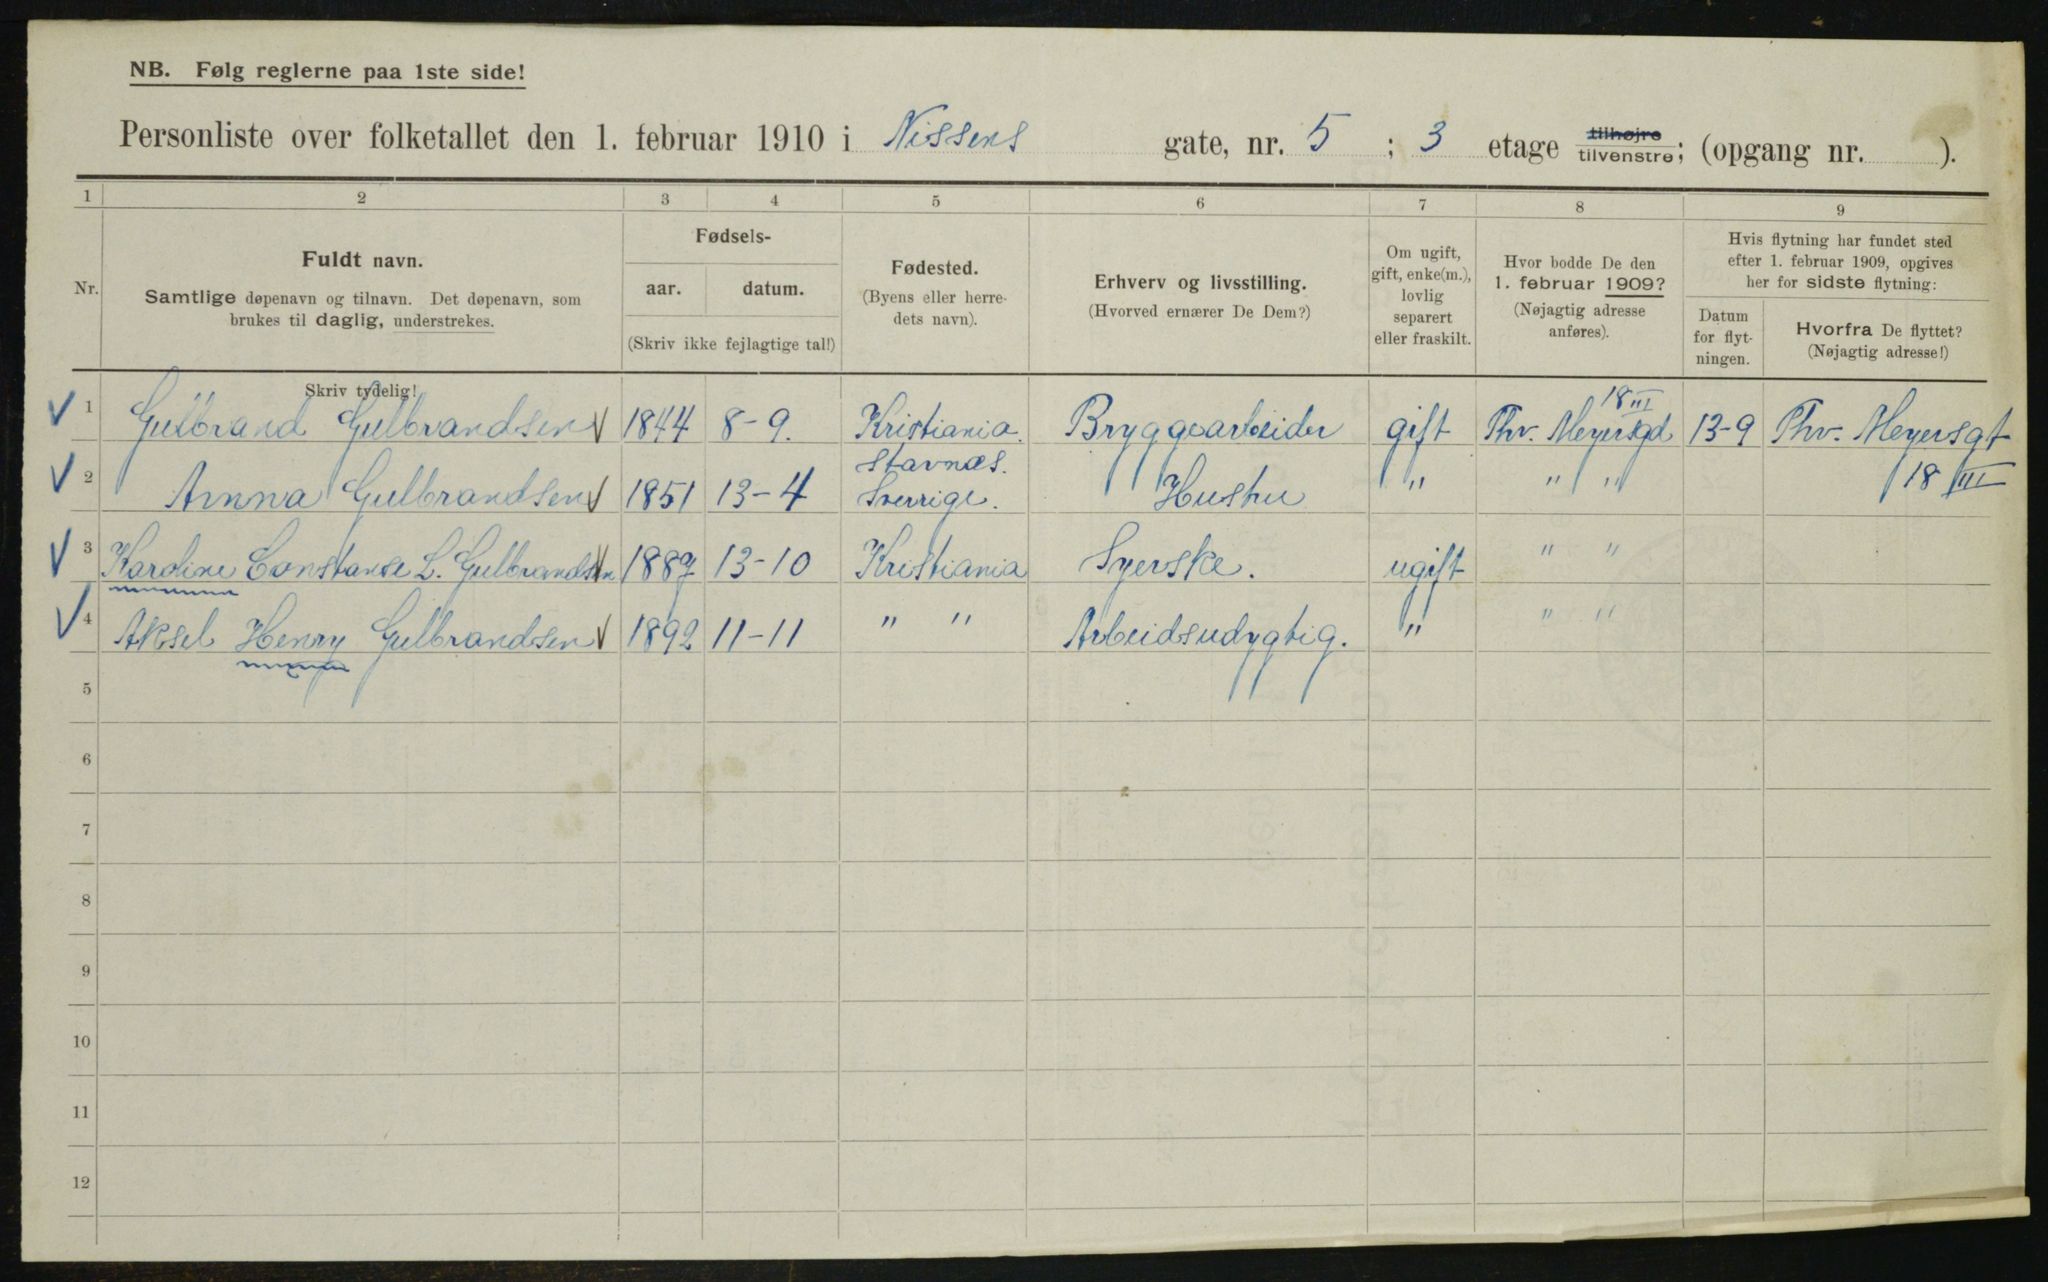 NB. Følg reglerne paa 1ste side!
Personliste over folketallet den 1. februar 1910 i Nissens gate, nr. 5 ; 3 etage tilhøjre tilvenstre; (opgang nr. ).
1 2 3 4 5 6 7 8 9
Nr.
Fuldt navn.
Samtlige døpenavn og tilnavn. Det døpenavn, som
brukes til daglig, understrekes.
Skriv tydelig!
Fødsels-
aar. datum.
(Skriv ikke fejlagtige tal!)
Fødested.
(Byens eller herre-
dets navn).
Erhverv og livsstilling.
(Hvorved ernærer De Dem?)
Om ugift,
gift, enke(m.),
lovlig
separert
eller fraskilt.
Hvor bodde De den
1. februar 1909?
(Nøjagtig adresse
anføres).
Hvis flytning har fundet sted
efter 1. februar 1909, opgives
her for sidste flytning:
Datum
for flyt-
ningen.
Hvorfra De flyttet?
(Nøjagtig adresse!)
18 III
1 Gulbrand Gulbrandsen 1844 8-9. Kristiania. Bryggearbeider gift Thv. Meyersgd 13-9 Thv. Meyersgt
Stavnæs. 18 III
2 Anna Gulbrandsen 1851 13-4 Sverrige. Hustru " " "
3 Karoline Constanse L. Gulbrandsen 1887 13-10 Kristiania Syerske. ugift " "
4 Aksel Henry Gulbrandsen 1892 11-11 " " Arbeidsudygtig. " " "
5
6
7
8
9
10
11
12